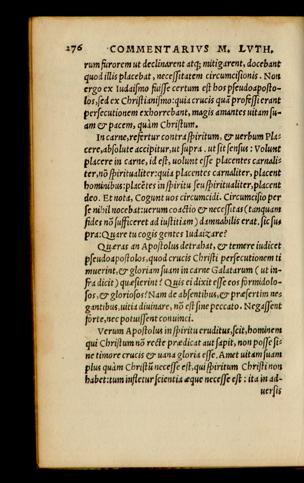 276 COMMENTARIVS M. LVTH.
rum furorem ut declinarent atq; mitigarent, docebant
quod illis placebat, necessitatem circumcisionis. Non
ergo ex Iudaismo fuisse certum est hos pseudoaposto-
los, sed ex Christianismo: quia crucis quã professi erant
persecutionem exhorrebant, magis amantes uitam su-
am & pacem, quàm Christum.
In carne, refertur contra spiritum. & uerbum Pla-
cere, absolute accipitur, ut supra. ut sit sensus: Volunt
placere in carne, id est, uolunt esse placentes carnali-
ter, nõ spiritualiter: quia placentes carnaliter, placent
hominibus: placẽtes in spiritu seu spiritualiter, placent
deo. Et nota, Cogunt uos circumcidi. Circumcisio per
se nihil nocebat: uerum coactio & necessitas (tanquam
fides nõ sufficeret ad iustitiam) damnabilis erat. sic su-
pra: Quare tu cogis gentes Iudaizare?
Quæras an Apostolus detrahat, & temere iudicet
pseudoapostolos, quod crucis Christi persecutionem ti
muerint, & gloriam suam in carne Galatarum (ut in-
fra dicit) quæsierint? Quis ei dixit esse eos formidolo-
sos, & gloriosos? Nam de absentibus, & præsertim ne-
gantibus, uitia diuinare, nõ est sine peccato. Negassent
forte, nec potuissent conuinci.
Verum Apostolus in spiritu eruditus, scit, hominem
qui Christum nõ recte prædicat aut sapit, non posse si-
ne timore crucis & uana gloria esse. Amet uitam suam
plus quàm Christũ necesse est, qui spiritum Christi non
habet: tum infletur scientia æque necesse est: ita in ad-
uersis